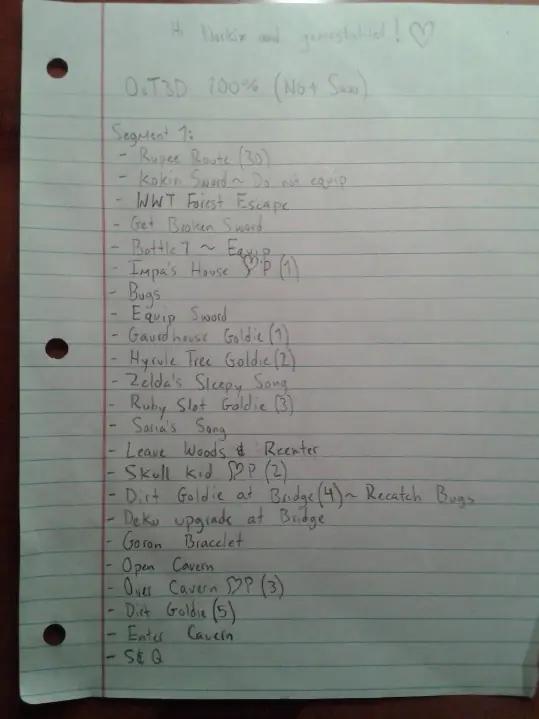 Hi and gamestabled! ♡
OoT3D 100% (No+ Saxo)
Segment 1:
- Rupee Route (30)
- Kokiri Sword ~ Do not equip
- WWT Forest Escape
- Get Broken Sword
- Bottle 1 ~ Equip
- Impa's House ♡P (1)
- Bugs
- Equip Sword
- Gaurdhouse Goldie (1)
- Hyrule Tree Goldie (2)
- Zelda's Sleepy Song
- Ruby Slot Goldie (3)
- Saria's Song
- Leave Woods & Reenter
- Skull Kid ♡P (2)
- Dirt Goldie at Bridge (4) ~ Recatch Bugs
- Deku upgrade at Bridge
- Goron Bracelet
- Open Cavern
- Over Cavern ♡P (3)
- Dirt Goldie (5)
- Enter Cavern
- S & Q